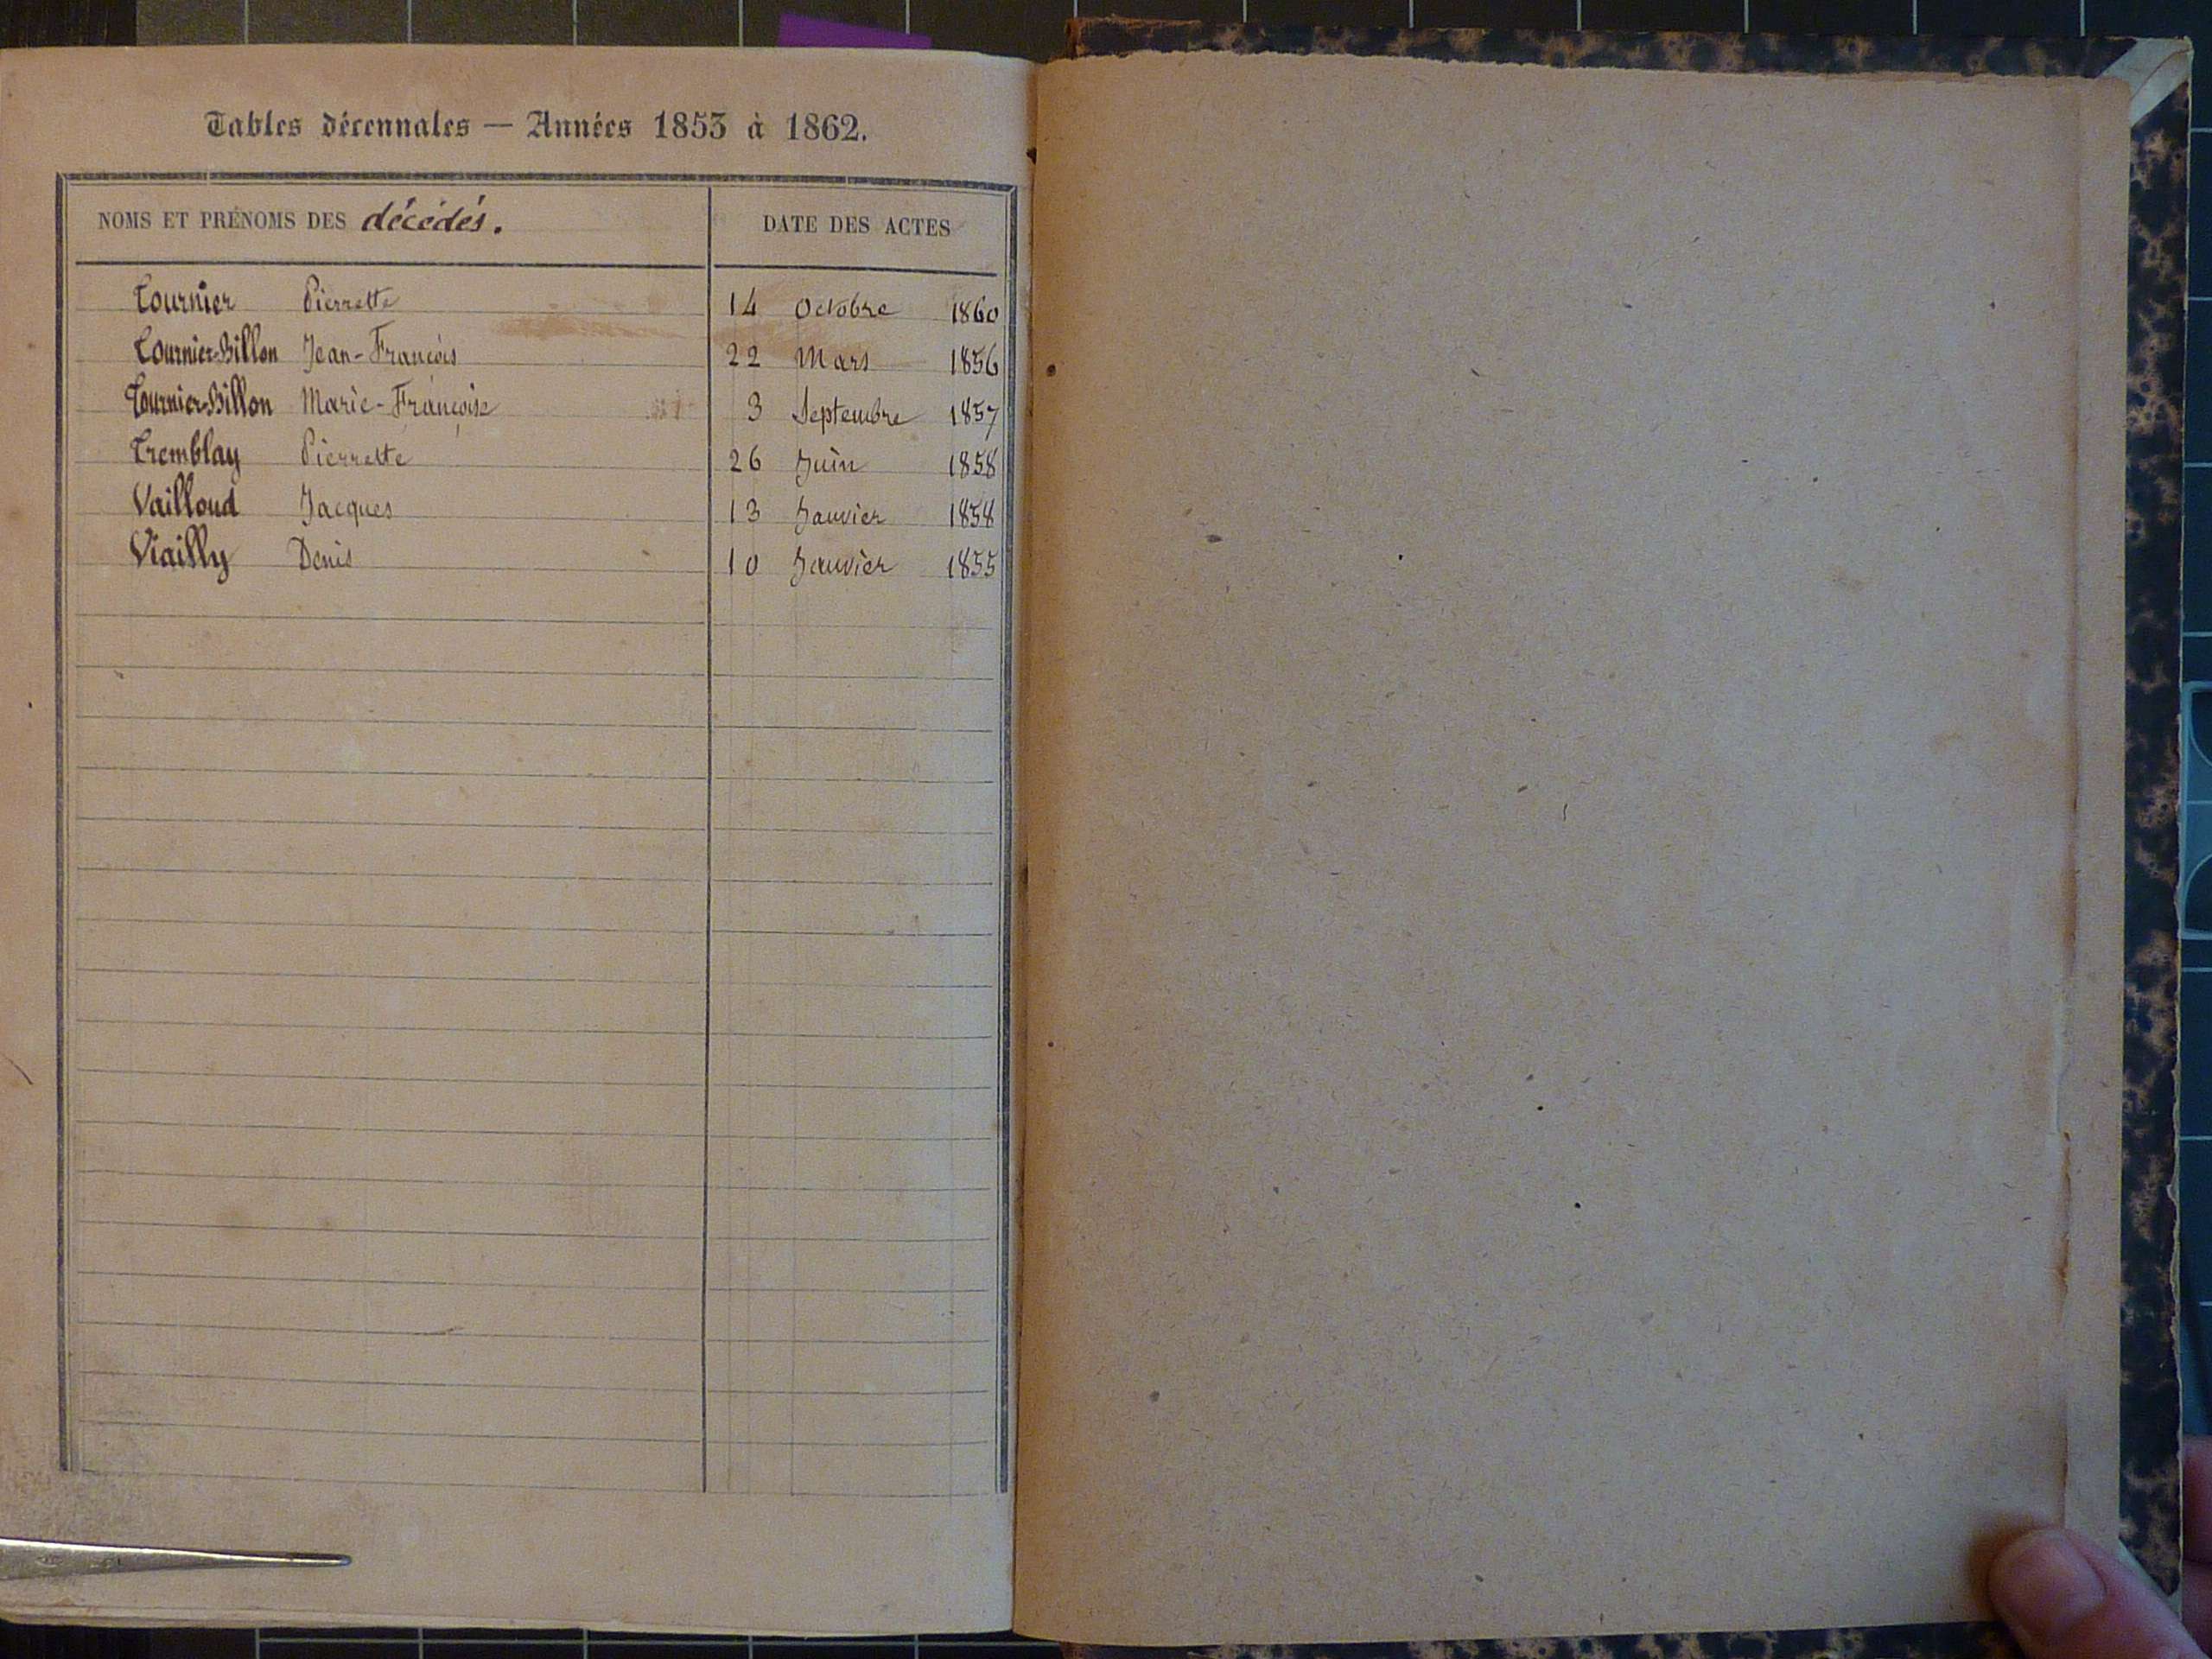 Tables décennales — Années 1853 à 1862.
NOMS ET PRÉNOMS DES décédés. DATE DES ACTES
Tournier Pierrette 14 Octobre 1860
Tournier-Billon Jean-François 22 Mars 1856
Tournier-Billon Marie-Françoise 3 Septembre 1857
Tremblay Pierrette 26 Juin 1858
Vailloud Jacques 13 Janvier 1858
Viailly Denis 10 Janvier 1855